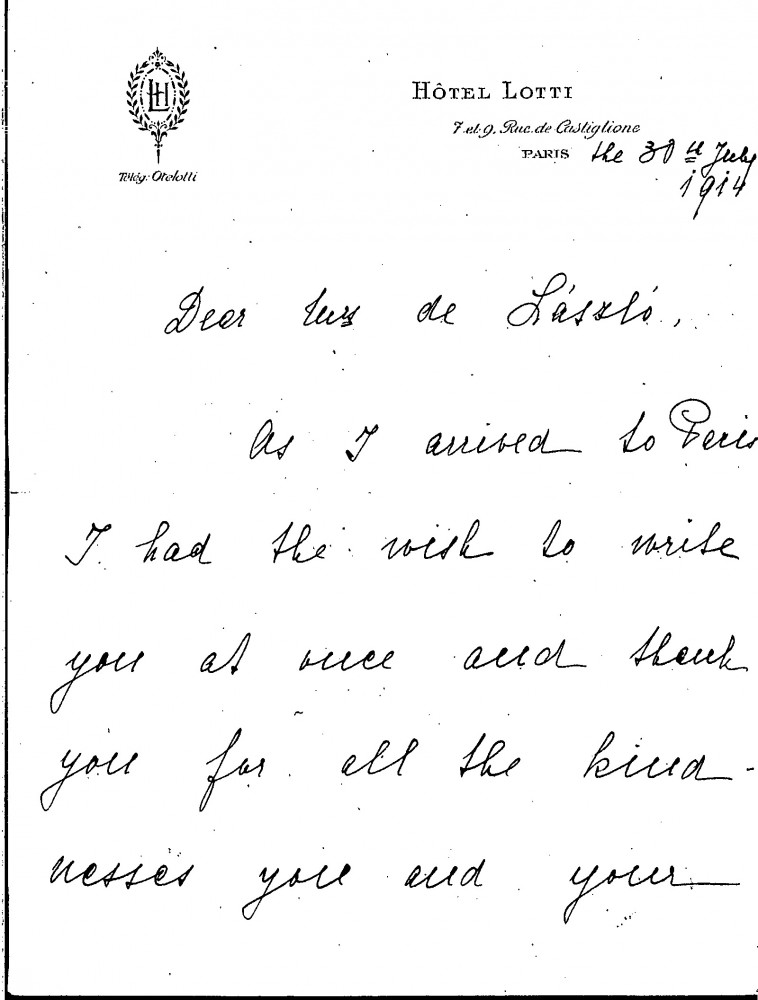 HÔTEL LOTTI
7 et 9. Rue de Castiglione
PARIS the 30th July
1914
LH
Télég: Otelotti
Dear Mrs de László,
As I arrived to Paris
I had the wish to write
you at once and thank
you for all the kind-
nesses you and your